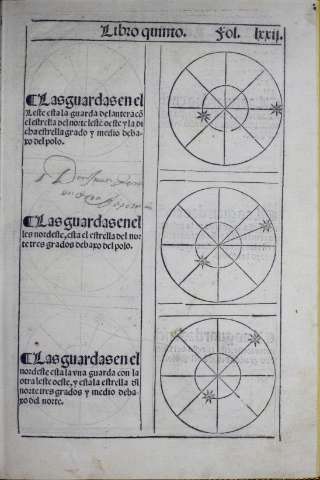 Libro quinto. Fol. lxxij.
¶Las guardas en el
Leste esta la guarda delantera cõ
el estrella del norte leste oeste y la di
cha estrella grado y medio deba
xo del polo.
¶Las guardas en el
les nordeste, esta el estrella del nor
te tres grados debaxo del polo.
¶Las guardas en el
nordeste esta la vna guarda con la
otra leste oeste, y esta la estrella dl
norte tres grados y medio deba
xo del norte.